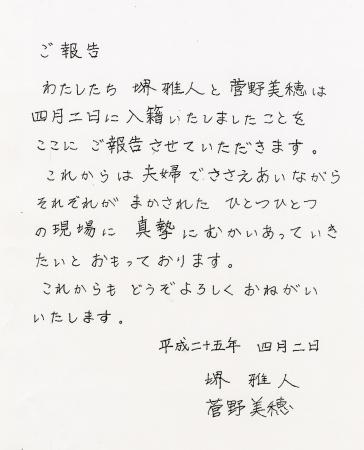 ご報告
わたしたち 堺雅人と菅野美穂は
四月二日に入籍いたしましたことを
ここに ご報告させていただきます。
これからは夫婦でささえあいながら
それぞれが まかされた ひとつひとつ
の現場に 真摯にむかいあっていき
たいと おもっております。
これからも どうぞよろしく おねがい
いたします。
平成二十五年 四月二日
堺 雅人
菅野美穂